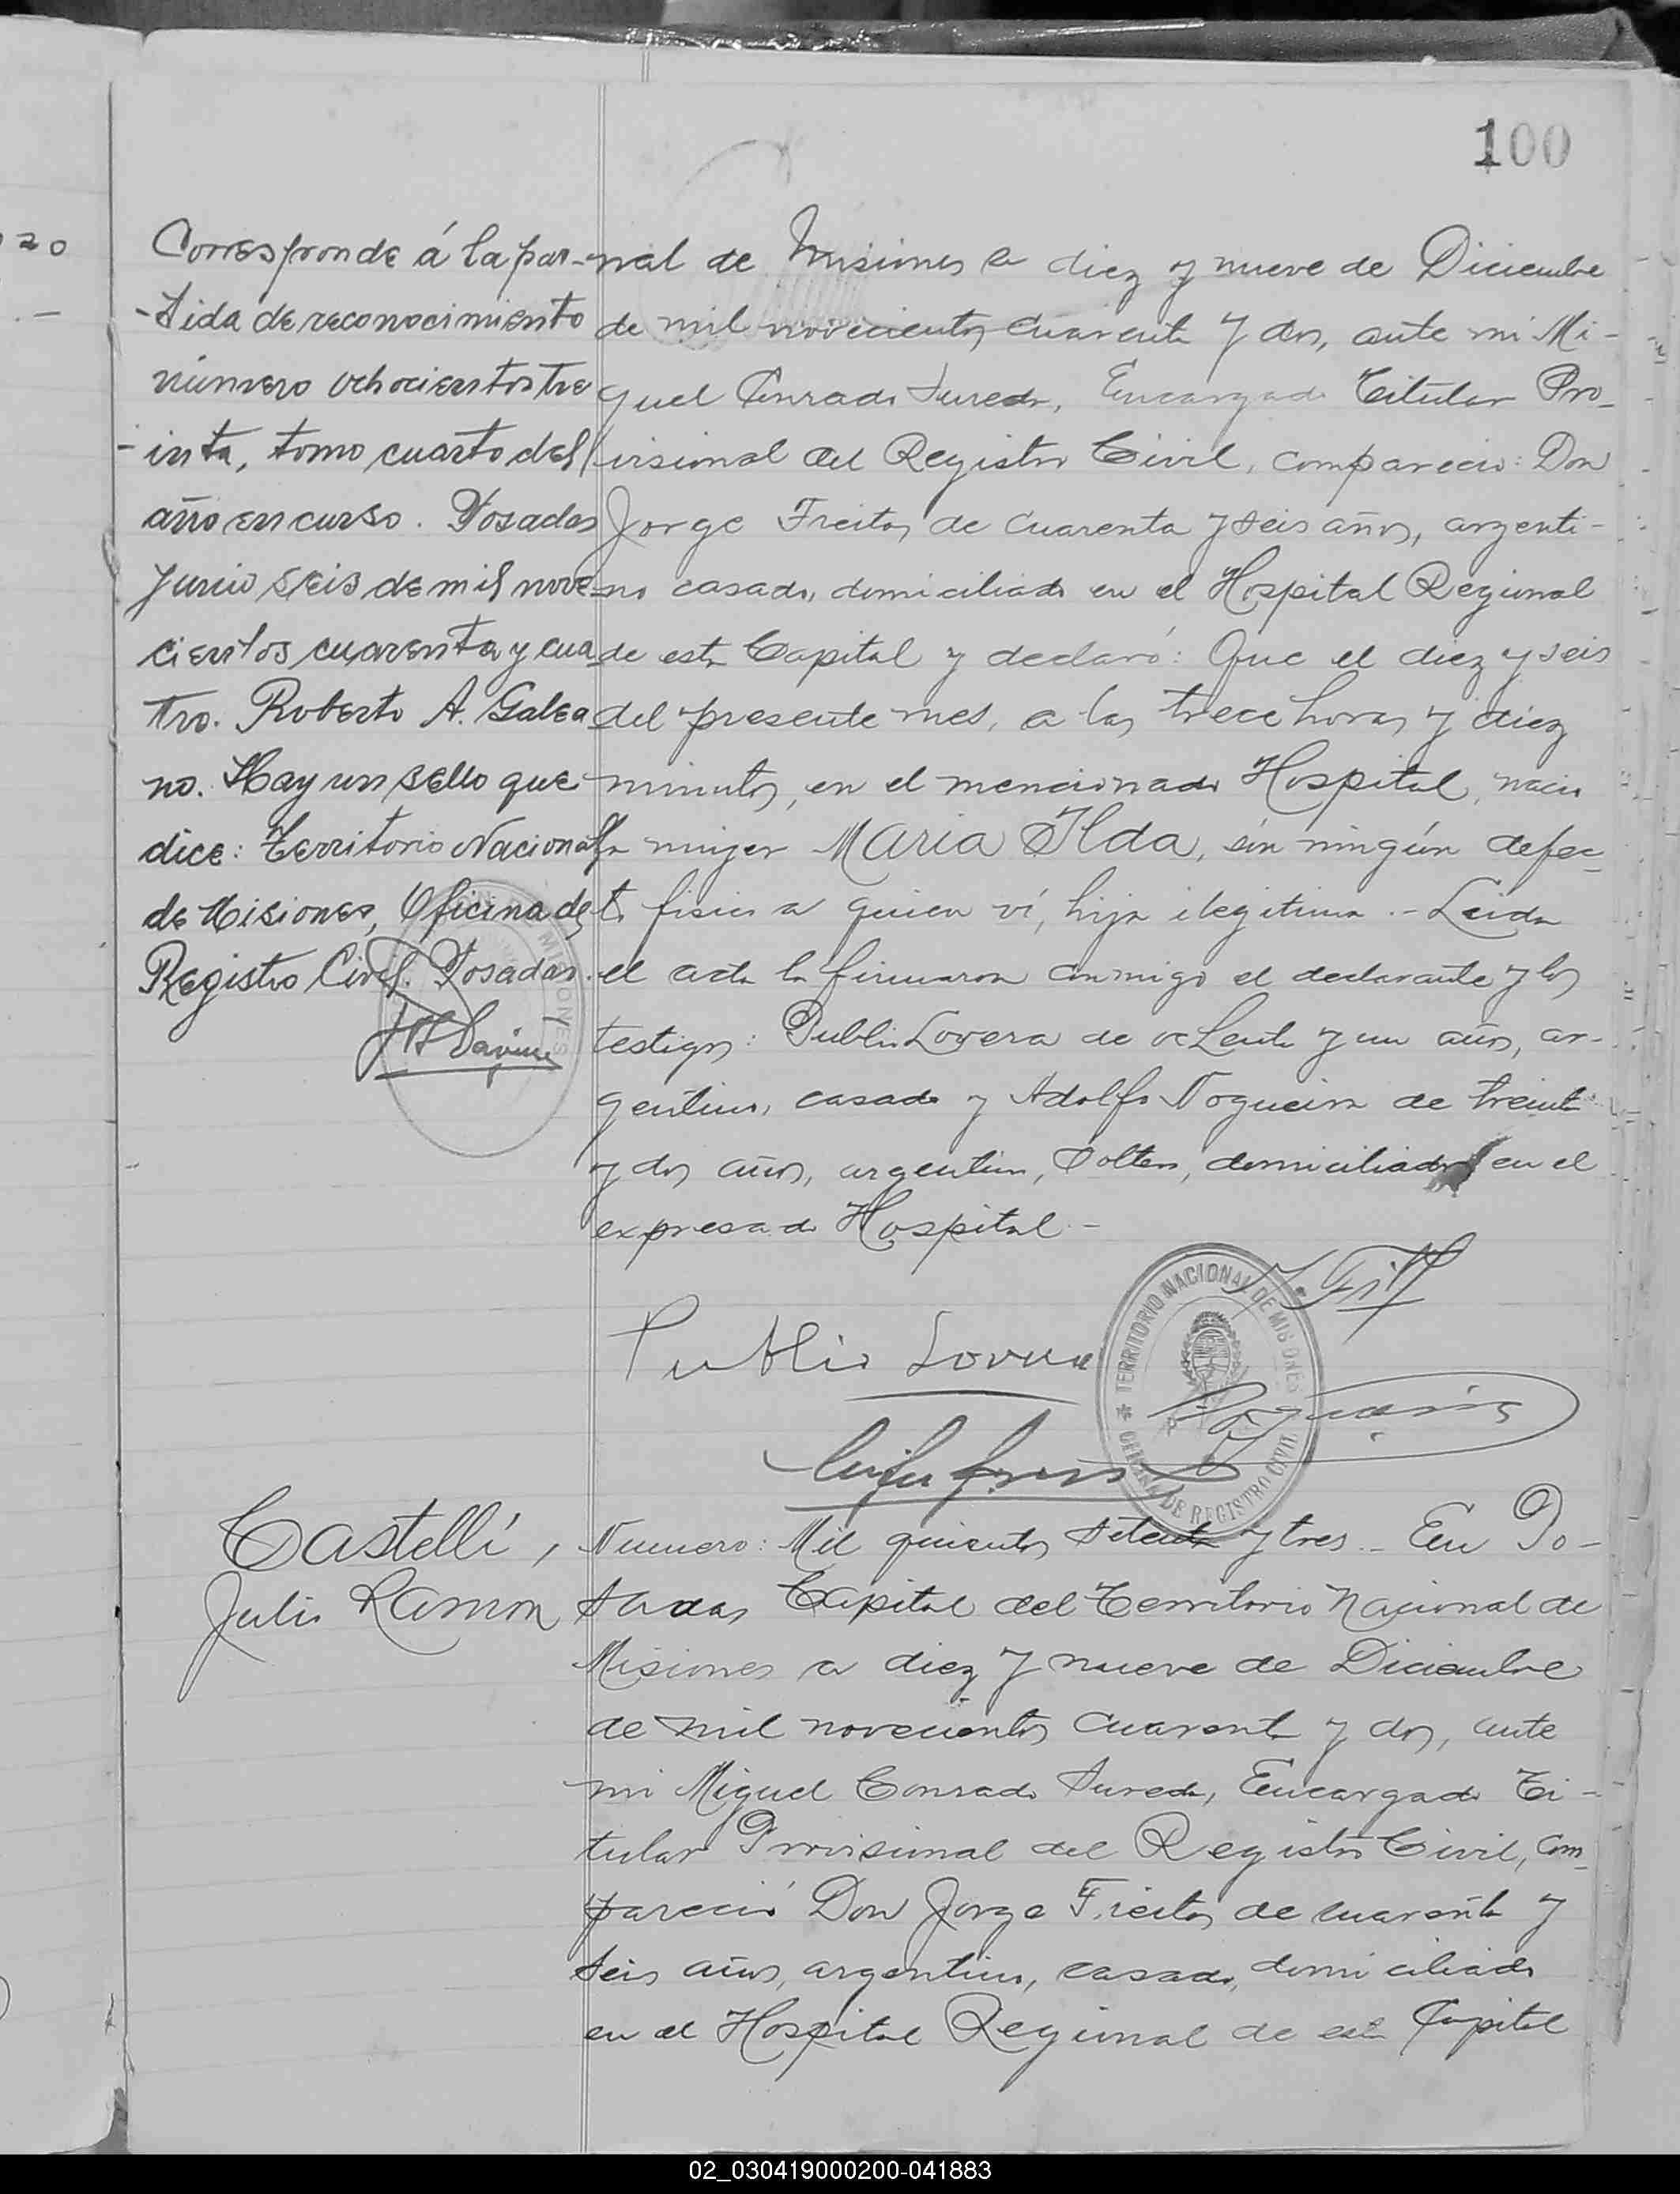 100
20
Corresponde á la par-
-tida de reconocimiento
número ochocientos tre
-inta, tomo cuarto del
año en curso. Posadas
Junio seis de mil nove-
cientos cuarenta y cua-
tro. Roberto A. Galea-
no. Hay un sello que
dice: Territorio Nacional
de Misiones, Oficina del
Registro Civil. Posadas.
nal de Misiones a diez y nueve de Diciembre
de mil novecientos cuarenta y dos, ante mi Mi-
guel Conrado Sureda, Encargado Titular Pro-
visional del Registro Civil, compareció: Don
Jorge Freitas de cuarenta y seis años, argenti-
no casado, domiciliado en el Hospital Regional
de esta Capital y declaró: Que el diez y seis
del presente mes, a las trece horas y diez
minutos, en el mencionado Hospital, nació
la mujer Maria Ilda, sin ningún defec-
to fisico a quien ví, hija ilegitima.- Leida
el acta la firmaron conmigo el declarante y los
testigos: Publio Lovera de ochenta y un años, ar-
gentino, casado y Adolfo Nogueira de treinta
y dos años, argentino, soltero, domiciliados en el
expresado Hospital.-
Publio Lovera
TERRITORIO NACIONAL DE MISIONES
OFICINA DE REGISTRO CIVIL
Castelli,
Julio Ramon
Numero: Mil quinientos setenta y tres.- En Po-
sadas Capital del Territorio Nacional de
Misiones a diez y nueve de Diciembre
de mil novecientos cuarenta y dos, ante
mi Miguel Conrado Sureda, Encargado Ti-
tular Provisional del Registro Civil, com-
pareció Don Jorge Freitas de cuarenta y
seis años, argentino, casado, domiciliado
en el Hospital Regional de esta Capital
02_030419000200-041883